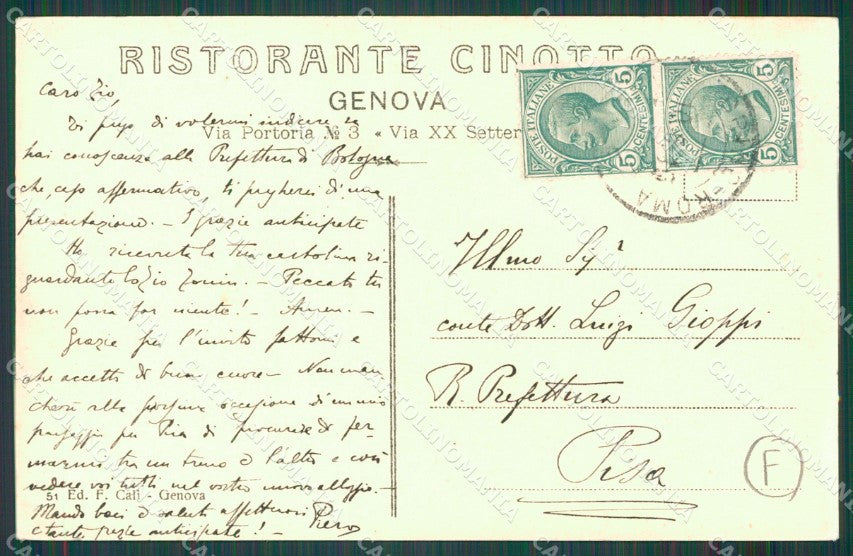 RISTORANTE CINOTTO
GENOVA
Via Portoria № 3 « Via XX Setter
Caro Zio,
Ti prego di volermi indicare se
hai conoscenza alla Prefettura di Bologna
che, caso affermativo, ti pregherei di una
presentazione. - E grazie anticipate
Ho ricevuto la tua cartolina ri-
guardante lo Zio - Peccato tu
non possa far niente! - Amen. -
Grazie per l'invito fattomi e
che accetto di buon cuore - Non man
cherò alla prossima occasione di un mio
passaggio per Pisa di procurare di fer-
marmi tra un treno e l'altro e così
vedere voi tutti nel vostro nuovo alloggio. -
Mando baci e saluti affettuosi Piero
e tante grazie anticipate! -
51 Ed. F. Calì - Genova
POSTE ITALIANE
5 CENTESIMI 5
POSTE ITALIANE
5 CENTESIMI 5
ROMA
Illmo Sigr
conte Dott. Luigi Gioppi
R. Prefettura
Pisa
F
CARTOLINOMANIA